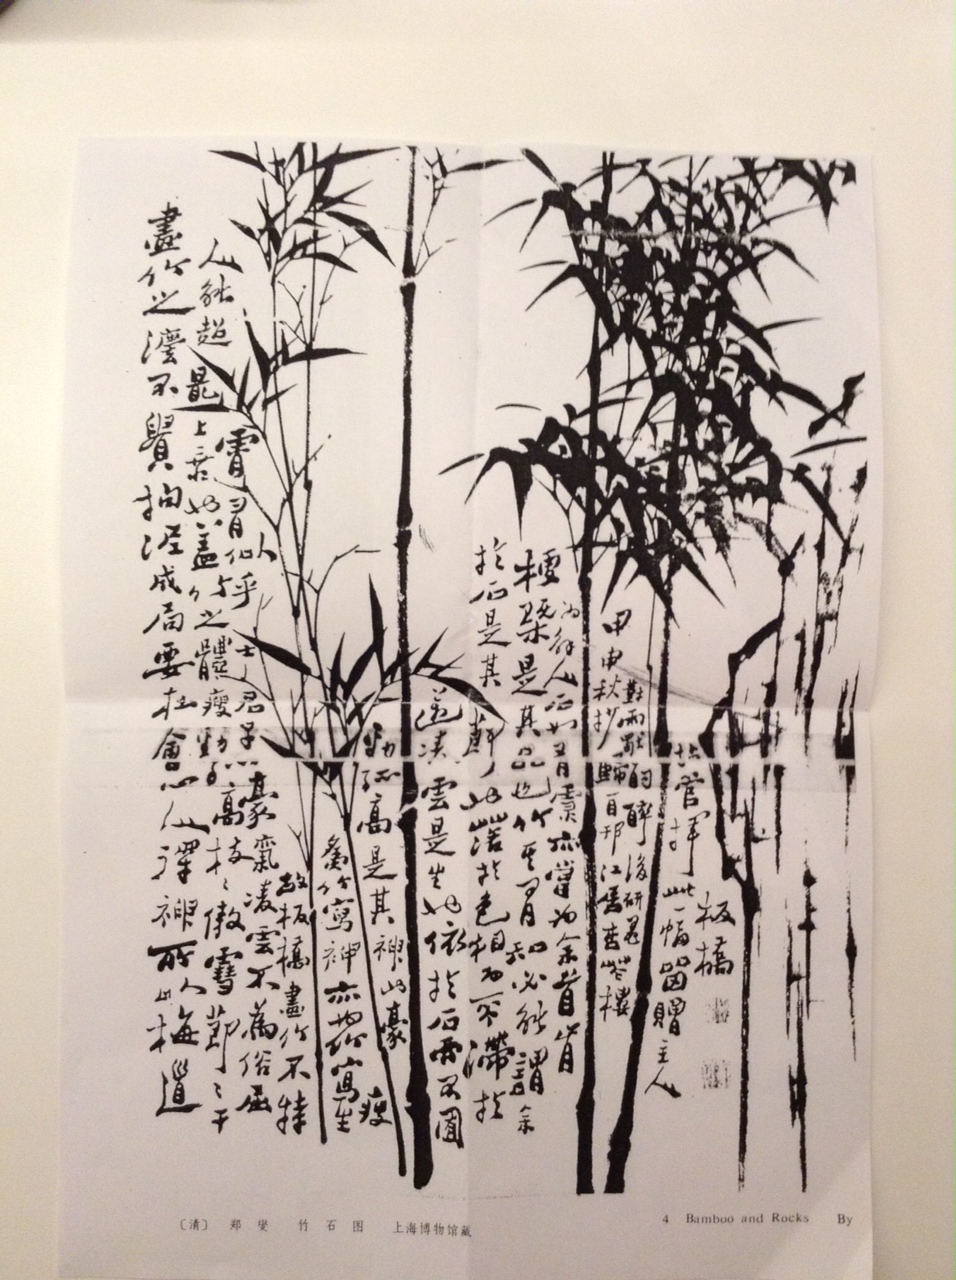 畫竹之灋不貴拘泥成局要在會心人得神所以梅道
人能超最上乘也蓋竹之體瘦勁孤高枝〻傲雪節〻干
霄有似乎士君子豪氣凌雲不為俗屈
故板橋畫竹不特
為竹寫神亦為竹寫生瘦
勁孤高是其神也豪
邁凌雲是生也依於石而不囿
於石是其節也落於色相而不滯於
梗槩是其品也竹其有知必能謂余
為解人石如有靈亦當為余首肯
甲申秋杪歸自邗江居杏花樓
對雨獨酌醉後研墨
拈管揮此一幅留贈主人
板橋
〔清〕 郑燮 竹石图 上海博物馆藏
4 Bamboo and Rocks By